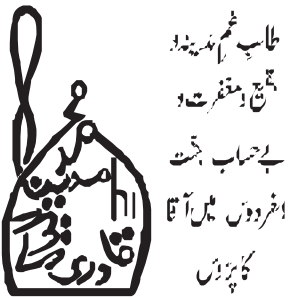 طالبِ غمِ مدینہ و
بقیع و مغفرت و
بے حساب جنّت
الفردوس میں آقا
کا پڑوس
محمد
مدینہ
قادری